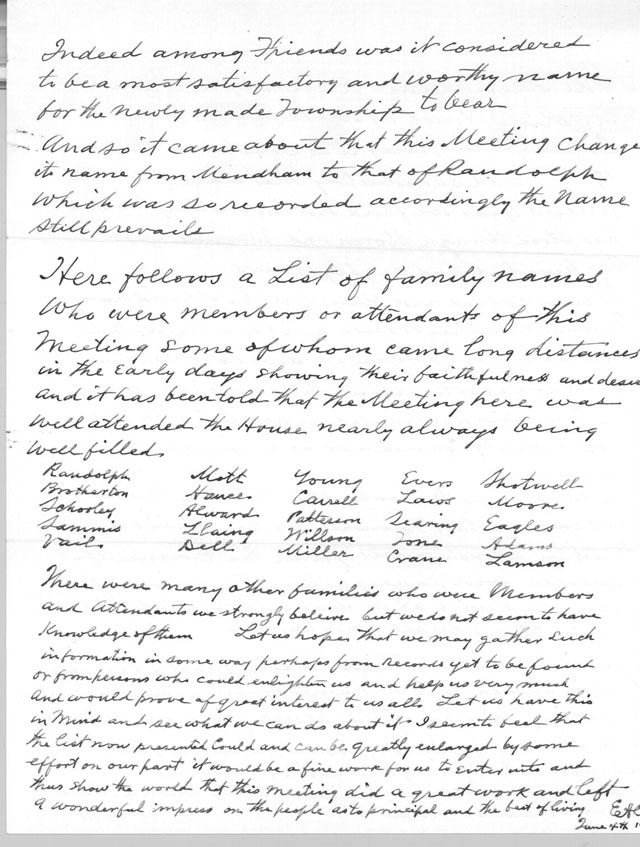 Indeed among Friends was it considered
to be a most satisfactory and worthy name
for the newly made Township to bear
And so it came about that this Meeting Change
its name from Mendham to that of Randolph
which was so recorded accordingly the Name
still prevails
Here follows a List of family names
Who were members or attendants of this
Meeting some of whom came long distances
in the Early days showing their faithfulness and desire
and it has been told that the Meeting here was
well attended the House nearly always being
well filled.
Randolph Mott Young Evers Shotwell
Brotherton Hances Carrell Laws Moores
Schooley Alward Patterson Searing Eagles
Sammis Llaing Willson Jones Adams
Vails Dell Miller Crane Lamson
There were many other families who were Members
and Attendants we strongly believe but we do not seem to have
Knowledge of them Let us hope that we may gather such
information in some way perhaps from records yet to be found
or from persons who could enlighten us and help us very much
and would prove of great interest to us all. Let us have this
in Mind and see what we can do about it I seem to feel that
the list now presented Could and can be greatly enlarged by some
effort on our part it would be a fine work for us to Enter into and
thus show the world that this meeting did a great work and left
a wonderful impress on the people as to principal and the best of living
June 4th